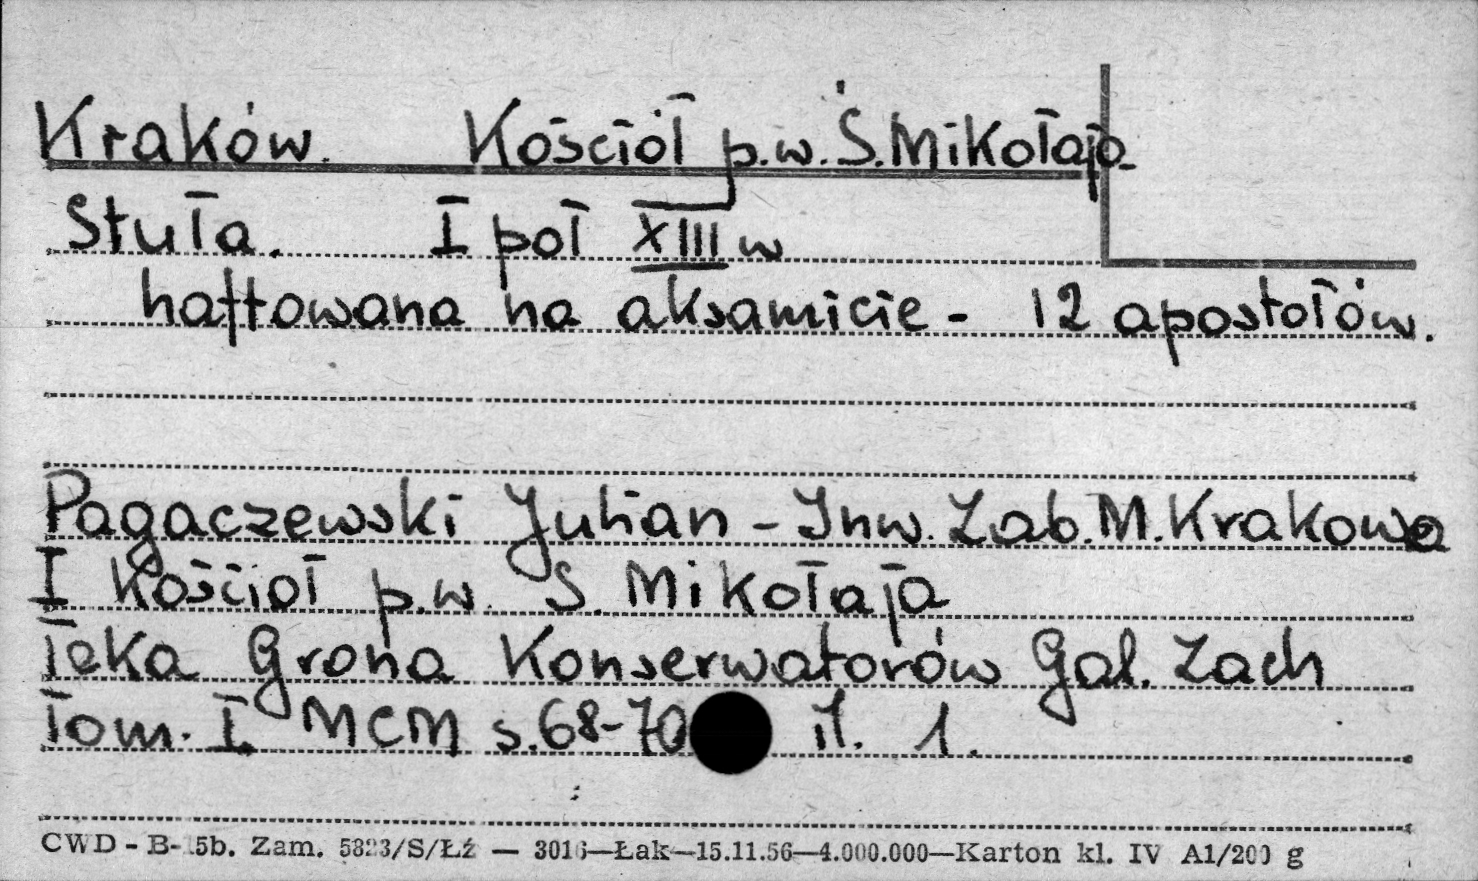 Kraków. Kościół p.w. Ś. Mikołaja
Stuła. I poł XIII w
haftowana na aksamicie - 12 apostołów.
Pagaczewski Julian - Inw. Zab. M. Krakowa
I Kościoł p.w. S. Mikołaja
Teka Grona Konserwatorów Gal. Zach
Tom. I. MCM s. 68-70 il. 1.
CWD - B- 5b. Zam. 5823/S/Łź — 3016—Łak—15.11.56—4.000.000—Karton kl. IV A1/200 g